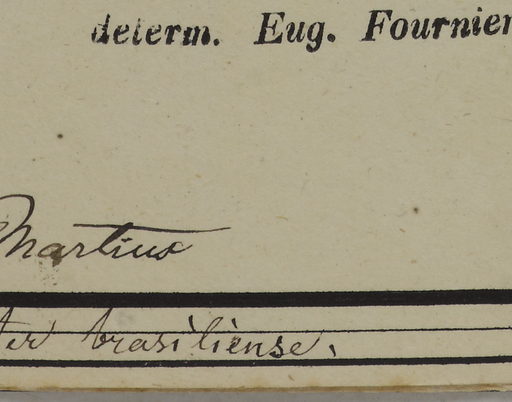 determ. Eug. Fournier
Martius
ter brasiliense.